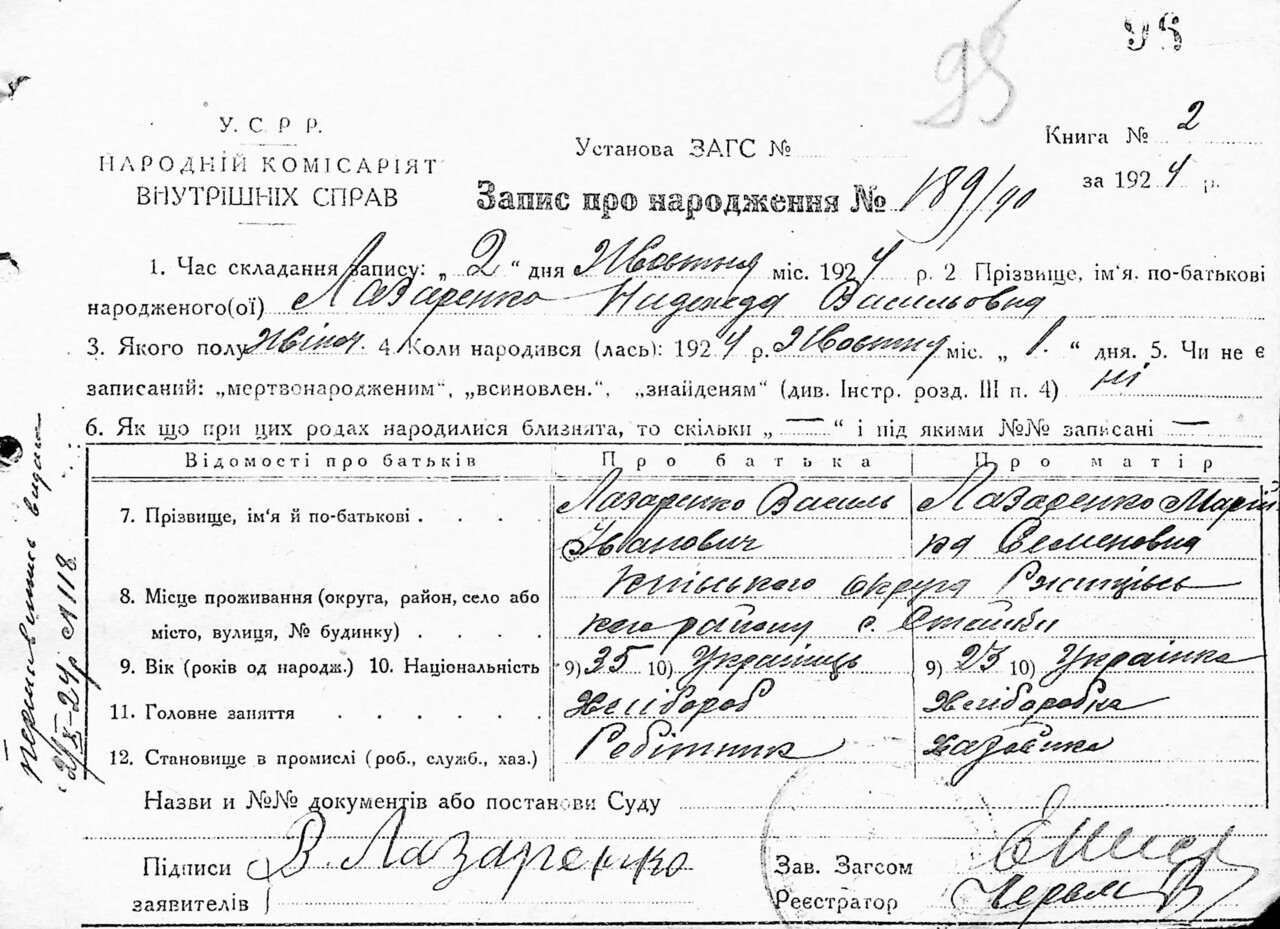 95
95
У. С. Р. Р.
НАРОДНІЙ КОМІСАРІЯТ
ВНУТРІШНІХ СПРАВ
Установа ЗАГС №
Книга № 2
за 1924 р.
Запис про народження № 189/90
1. Час складання запису: „ 2 “ дня Жовтня міс. 1924 р. 2 Прізвище, ім'я. по-батькові
народженого(ої) Лазаренко Надежда Васильовна
3. Якого полу жіноч. 4. Коли народився (лась): 1924 р. Жовтня міс. „ 1. “ дня. 5. Чи не є
записаний: „мертвонародженим“, „всиновлен.“, „знайденям“ (див. Інстр. розд. III п. 4) ні
6. Як що при цих родах народилися близнята, то скільки „ — “ і під якими №№ записані —
Відомості про батьків Про батька Про матір
7. Прізвище, ім'я й по-батькові . . . . Лазаренко Василь Лазаренко Марій
Іванович ка Семеновна
8. Місце проживання (округа, район, село або округа Ржищівсь
місто, вулиця, № будинку) . . . . кого району с. Стайки
9. Вік (років од народж.) 10. Національність 9) 35 10) Українець 9) 23 10) Українка
11. Головне заняття . . . . . . Хлібороб Хліборобка
12. Становище в промислі (роб., служб., хаз.) Хазяйка
Назви и №№ документів або постанови Суду
Підписи
заявителів
В. Лазаренко
Зав. Загсом
Реєстратор
2/X-24р №118